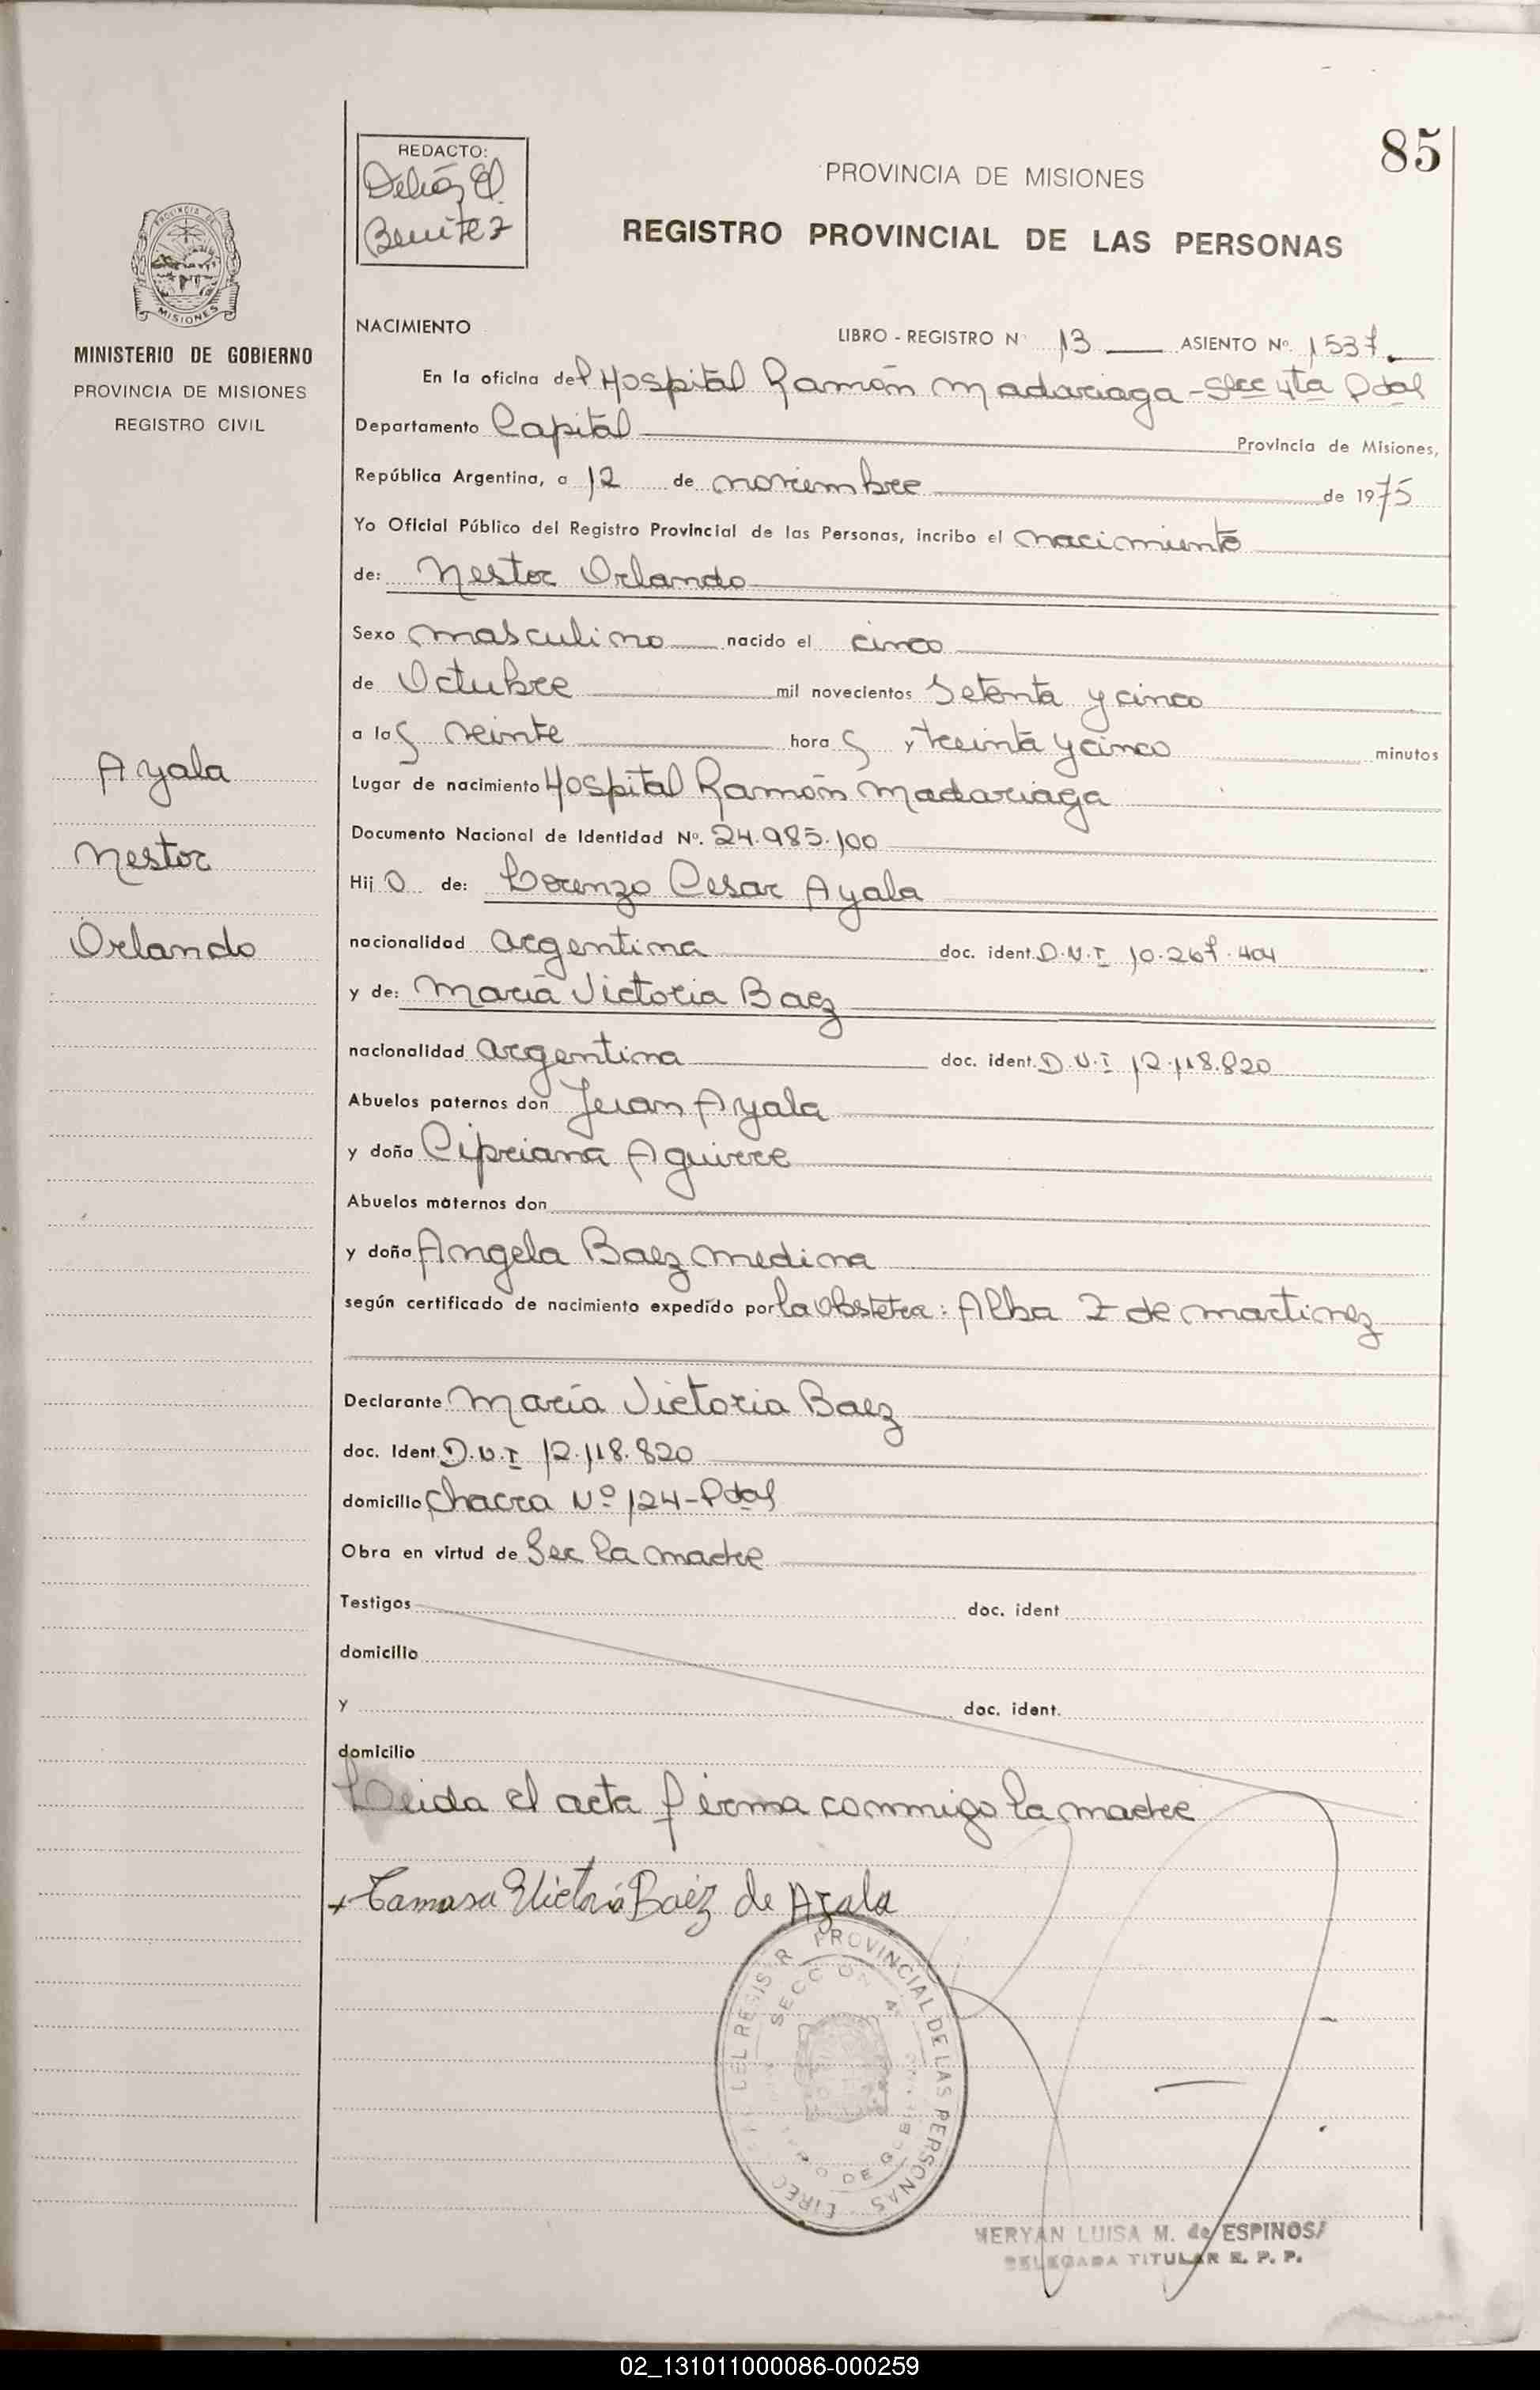 85
REDACTO:
Delia El.
Benitez
PROVINCIA DE MISIONES
REGISTRO PROVINCIAL DE LAS PERSONAS
MISIONES
MINISTERIO DE GOBIERNO
PROVINCIA DE MISIONES
REGISTRO CIVIL
NACIMIENTO LIBRO - REGISTRO Nº 13 ASIENTO Nº. 1537
En la oficina del Hospital Ramón Madariaga - Secc 4ta Pdas
Departamento Capital Provincia de Misiones,
República Argentina, a 12 de noviembre de 1975
Yo Oficial Público del Registro Provincial de las Personas, incribo el nacimiento
de: Nestor Orlando
Sexo masculino nacido el cinco
de Octubre mil novecientos Setenta y cinco
a las veinte horas y treinta y cinco minutos
Lugar de nacimiento Hospital Ramón Madariaga
Documento Nacional de Identidad Nº. 24.985.100
Hijo de: Lorenzo Cesar Ayala
nacionalidad argentina doc. ident. D.N.I 10.267.404
y de: Maria Victoria Baez
nacionalidad argentina doc. ident. D.N.I 12.118.820
Abuelos paternos don Juan Ayala
y doña Cipriana Aguirre
Abuelos maternos don
y doña Angela Baez Medina
según certificado de nacimiento expedido por la Obstetra: Alba Z de Martinez
Declarante María Victoria Baez
doc. Ident. D.N.I 12.118.820
domicilio Chacra Nº 124 - Pdas
Obra en virtud de Ser la madre
Testigos doc. ident
domicilio
y doc. ident.
domicilio
Leida el acta firma conmigo la madre
Ayala
Nestor
Orlando
Tamasa Victoria Baéz de Ayala
PROVINCIAL DE LAS PERSONAS
SECCION 4ª
MERYAN LUISA M. de ESPINOSA
DELEGADA TITULAR R. P. P.
02_131011000086-000259